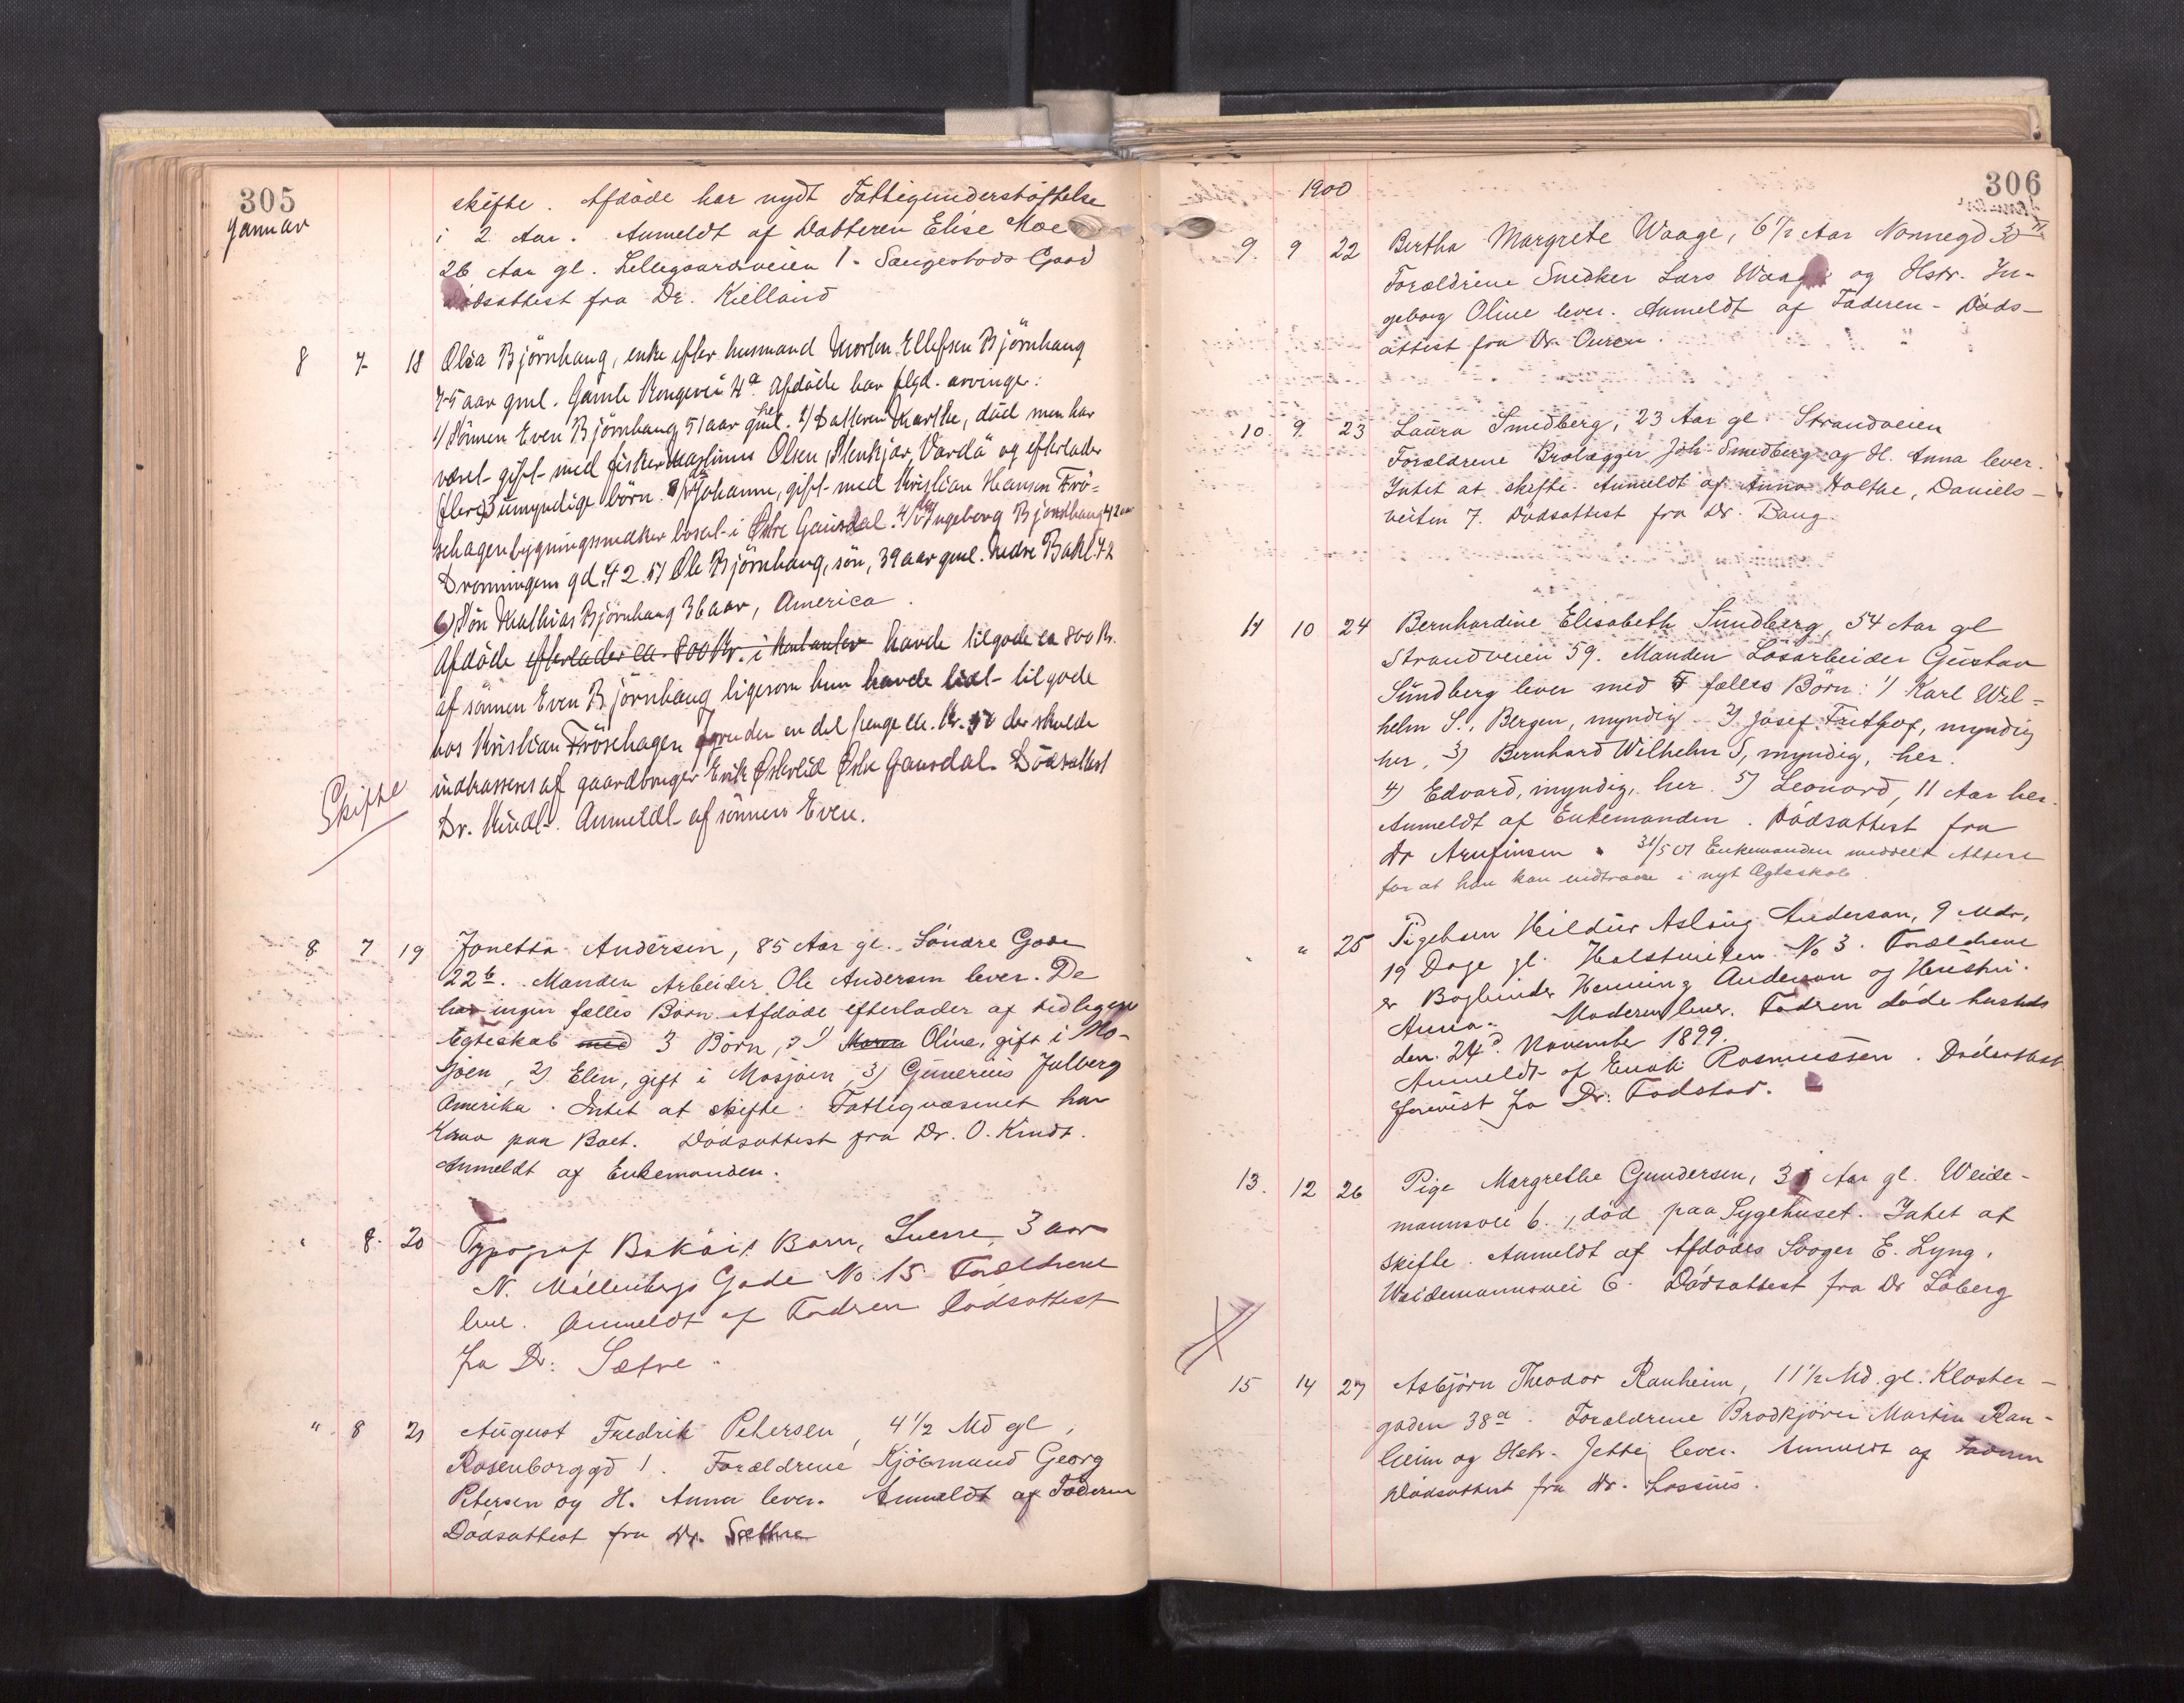 305
Januar
skifte. Afdøde har nydt Fattigunderstøttelse
i 2 Aar. Anmeldt af Datteren Elise Moe
26 Aar gl. Lillegaardsveien 1. Saugestads Gaard
Dødsattest fra Dr. Kielland
8 7 18 Olea Bjørnhaug, enke efter husmand Morten Ellefsen Bjørnhaug
75 aar gml. Gamle Kongevei 4a. Afdøde har flgd. arvinger:
1) Sønnen Even Bjørnhaug 51 aar gml. her 2) Datteren Marthe, død men har
været gift med fisker Magnus Olsen, Vardø og efterlader
(flere) 3 umyndige børn. 3) Johanne, gift med Kristian Hansen Frö=
sehagen bygningssnedker bosat i Østre Gausdal. 4) Ingeborg Bjørnhaug 42 aar
Dronningens gd. 42. 5) Ole Bjørnhaug, søn, 39 aar gml. Nedre Bakl. 42
6) Søn Mathias Bjørnhaug 36 aar, America.
Afdøde efterlader ca. 800 Kr. i kontanter havde tilgode ca 800 Kr.
af sønnen Even Bjørnhaug ligesom hun havde tilgode
hos Kristian Fröschagen en del penge ca. Kr. 50 der skulde
indkasseres af gaardbruger Erik Østre Gausdal. Dødsattest
Dr. Kindt. Anmeldt af sønnen Even.
Skifte
8 7 19 Jonetta Andersen, 85 Aar gl. Søndre Gade
22b. Manden Arbeider Ole Andersen lever. De
har ingen fælles Børn. Afdøde efterlader af tidligere
Egteskab med 3 Børn, 1) Maren Oline, gift i Mo-
sjøen, 2) Elen, gift i Mosjøen, 3) Gunerius Julberg
Amerika. Intet at skifte. Fattigvæsenet har
Krav paa Boet. Dødsattest fra Dr. O. Kindt.
Anmeldt af Enkemanden.
" 8 20 Typograf Barn, Sverre 3 aar
N. Møllenbergs Gade No 15 Forældrene
leve. Anmeldt af Fadren Dødsattest
fra Dr: Sætre.
" 8 21 August Fredrik Petersen, 4 1/2 Md gl,
Rosenborggd 1. Forældrene Kjøbmand Georg
Petersen og H. Anna lever. Anmeldt af Faderen
Dødsattest fra Dr. Sæthre
1900
306
9. 9 22 Bertha Margrete Waage, 6 1/2 Aar Nonnegd 30 II
Forældrene Snedker Lars Waage og Hstr. In-
geborg Oline lever. Anmeldt af Faderen - Døds-
attest fra Dr. Ouren.
10 9 23 Laura Smedberg, 23 Aar gl. Strandveien
Forældrene Brolægger Joh. Smedberg og H. Anna lever.
Intet at skifte. Anmeldt af Anna Holthe, Daniels-
veiten 7. Dødsattest fra Dr. Bang.
11 10 24 Bernhardine Elisabeth Sundberg, 54 Aar gl
Strandveien 59. Manden Løsarbeider Gustav
Sundberg lever med 5 fælles Børn: 1) Karl Wil=
helm S., Bergen, myndig. 2) Josef Frithjof, myndig
her, 3) Bernhard Wilhelm S, myndig, her.
4) Edvard, myndig, her. 5) Leonard, 11 Aar her.
Anmeldt af Enkemanden. Dødsattest fra
Dr Arnfinsen. 31/5 01 Enkemanden meddelt Attest
for at han kan indtræde i nyt Ægteskab.
" " 25 Pigebarn Hildur Aslaug Anderson, 9 Mdr,
19 Dage gl. Holstveiten No 3. Forældrene
er Bogbinder Henning Anderson og Hustru.
Anna. Moderen lever. Fadren døde
den 24d November 1899.
Anmeldt af Enok Rasmussen. Dødsattest
forevist fra Dr: Todstad.
13. 12 26 Pige Margrethe Gundersen, 31 Aar gl. Weide-
mannsvei 6., død paa Sygehuset. Intet at
skifte. Anmeldt af Afdødes Svoger E. Lyng,
Weidemannsvei 6. Dødsattest fra Dr Løberg
15 14 27 Asbjørn Theodor Ranheim, 11 1/2 Md. gl. Kloster-
gaden 38a. Forældrene Brødkjører Martin Ran-
heim og Hstr. Jette lever. Anmeldt af Faderen
Dødsattest fra Dr. Lossius.